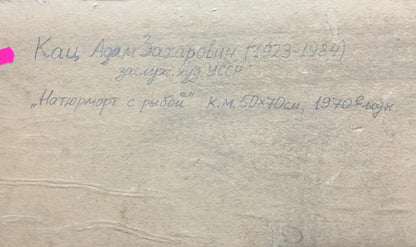 Кац Адам Захарович (1923-1984)
заслуж. худ. УССР
„Натюрморт с рыбой“ к.м. 50×70см, 1970е годы.